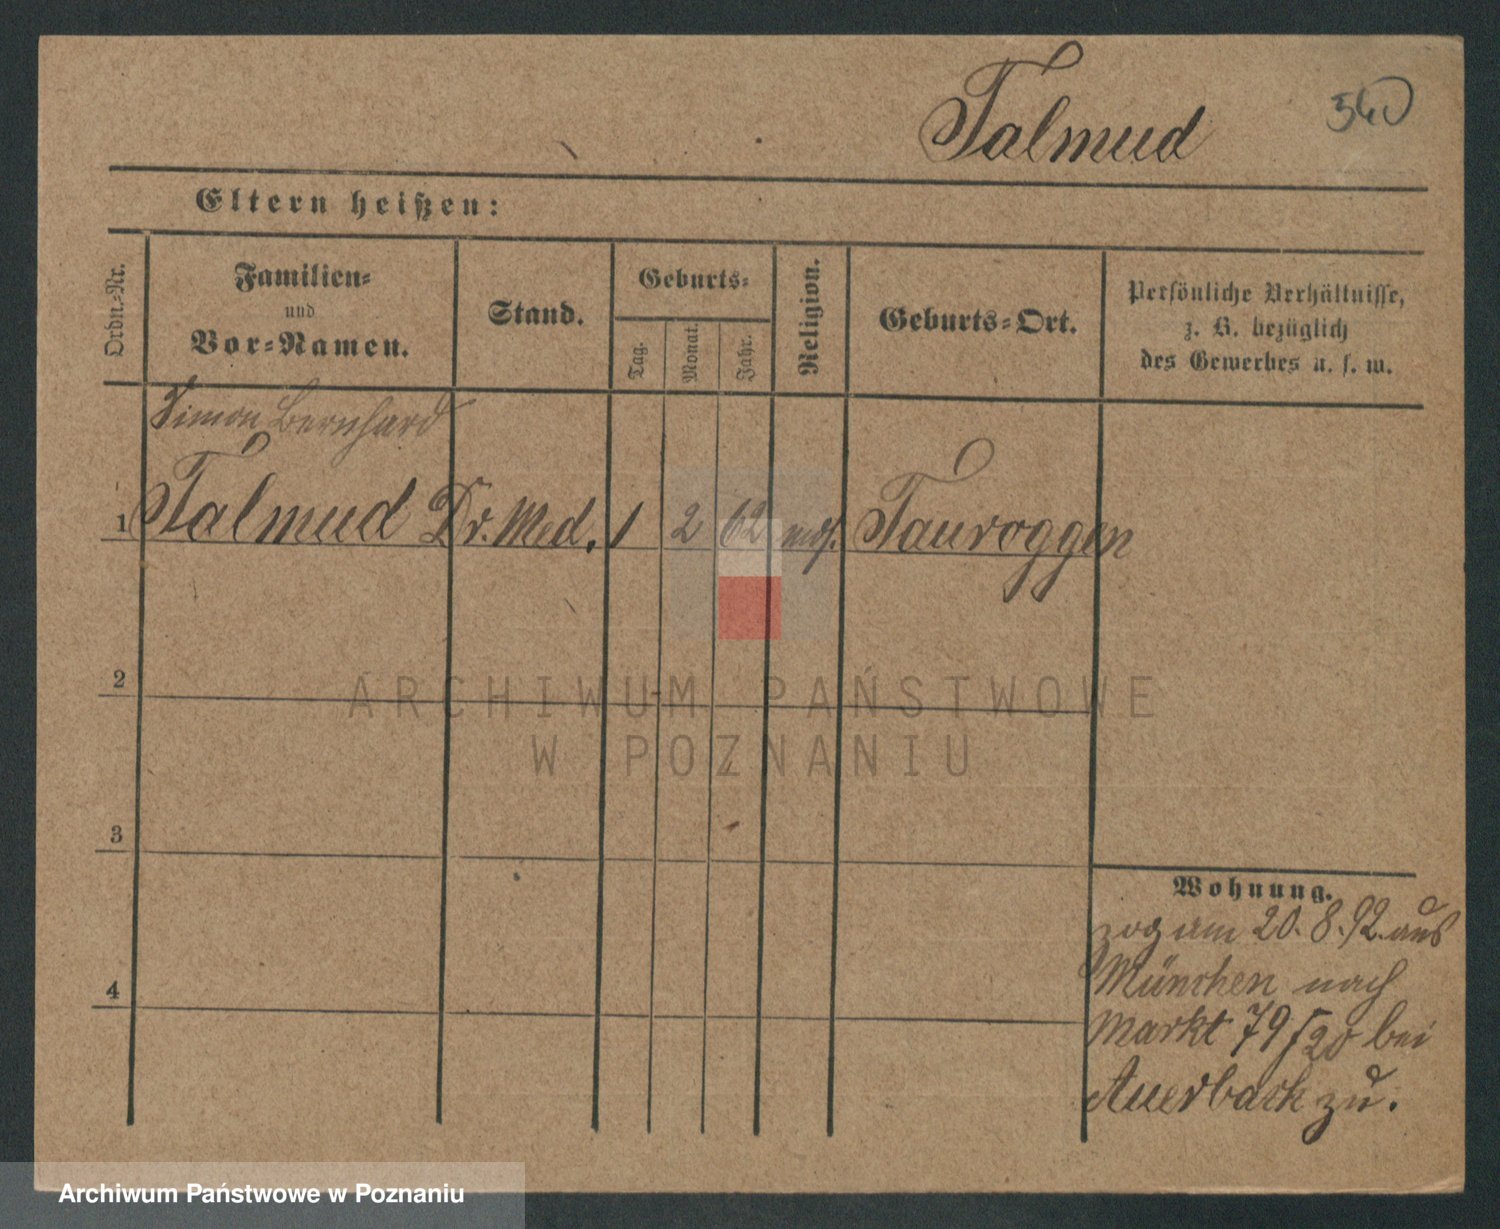 Talmud
540
Eltern heißen:
Ordn.-Nr.
Familien-
und
Vor-Namen.
Stand.
Geburts-
Tag.
Monat.
Jahr.
Religion.
Geburts-Ort.
Persönliche Verhältnisse,
z. B. bezüglich
des Gewerbes u. s. w.
Simon Bernhard
1 Talmud Dr. Med. 1 2 62 mos. Tauroggen
2
3
4
Wohnung.
zog am 20. 8. 92. aus
München nach
Markt 79/20 bei
Auerbach zu.
ARCHIWUM PAŃSTWOWE
W POZNANIU
Archiwum Państwowe w Poznaniu